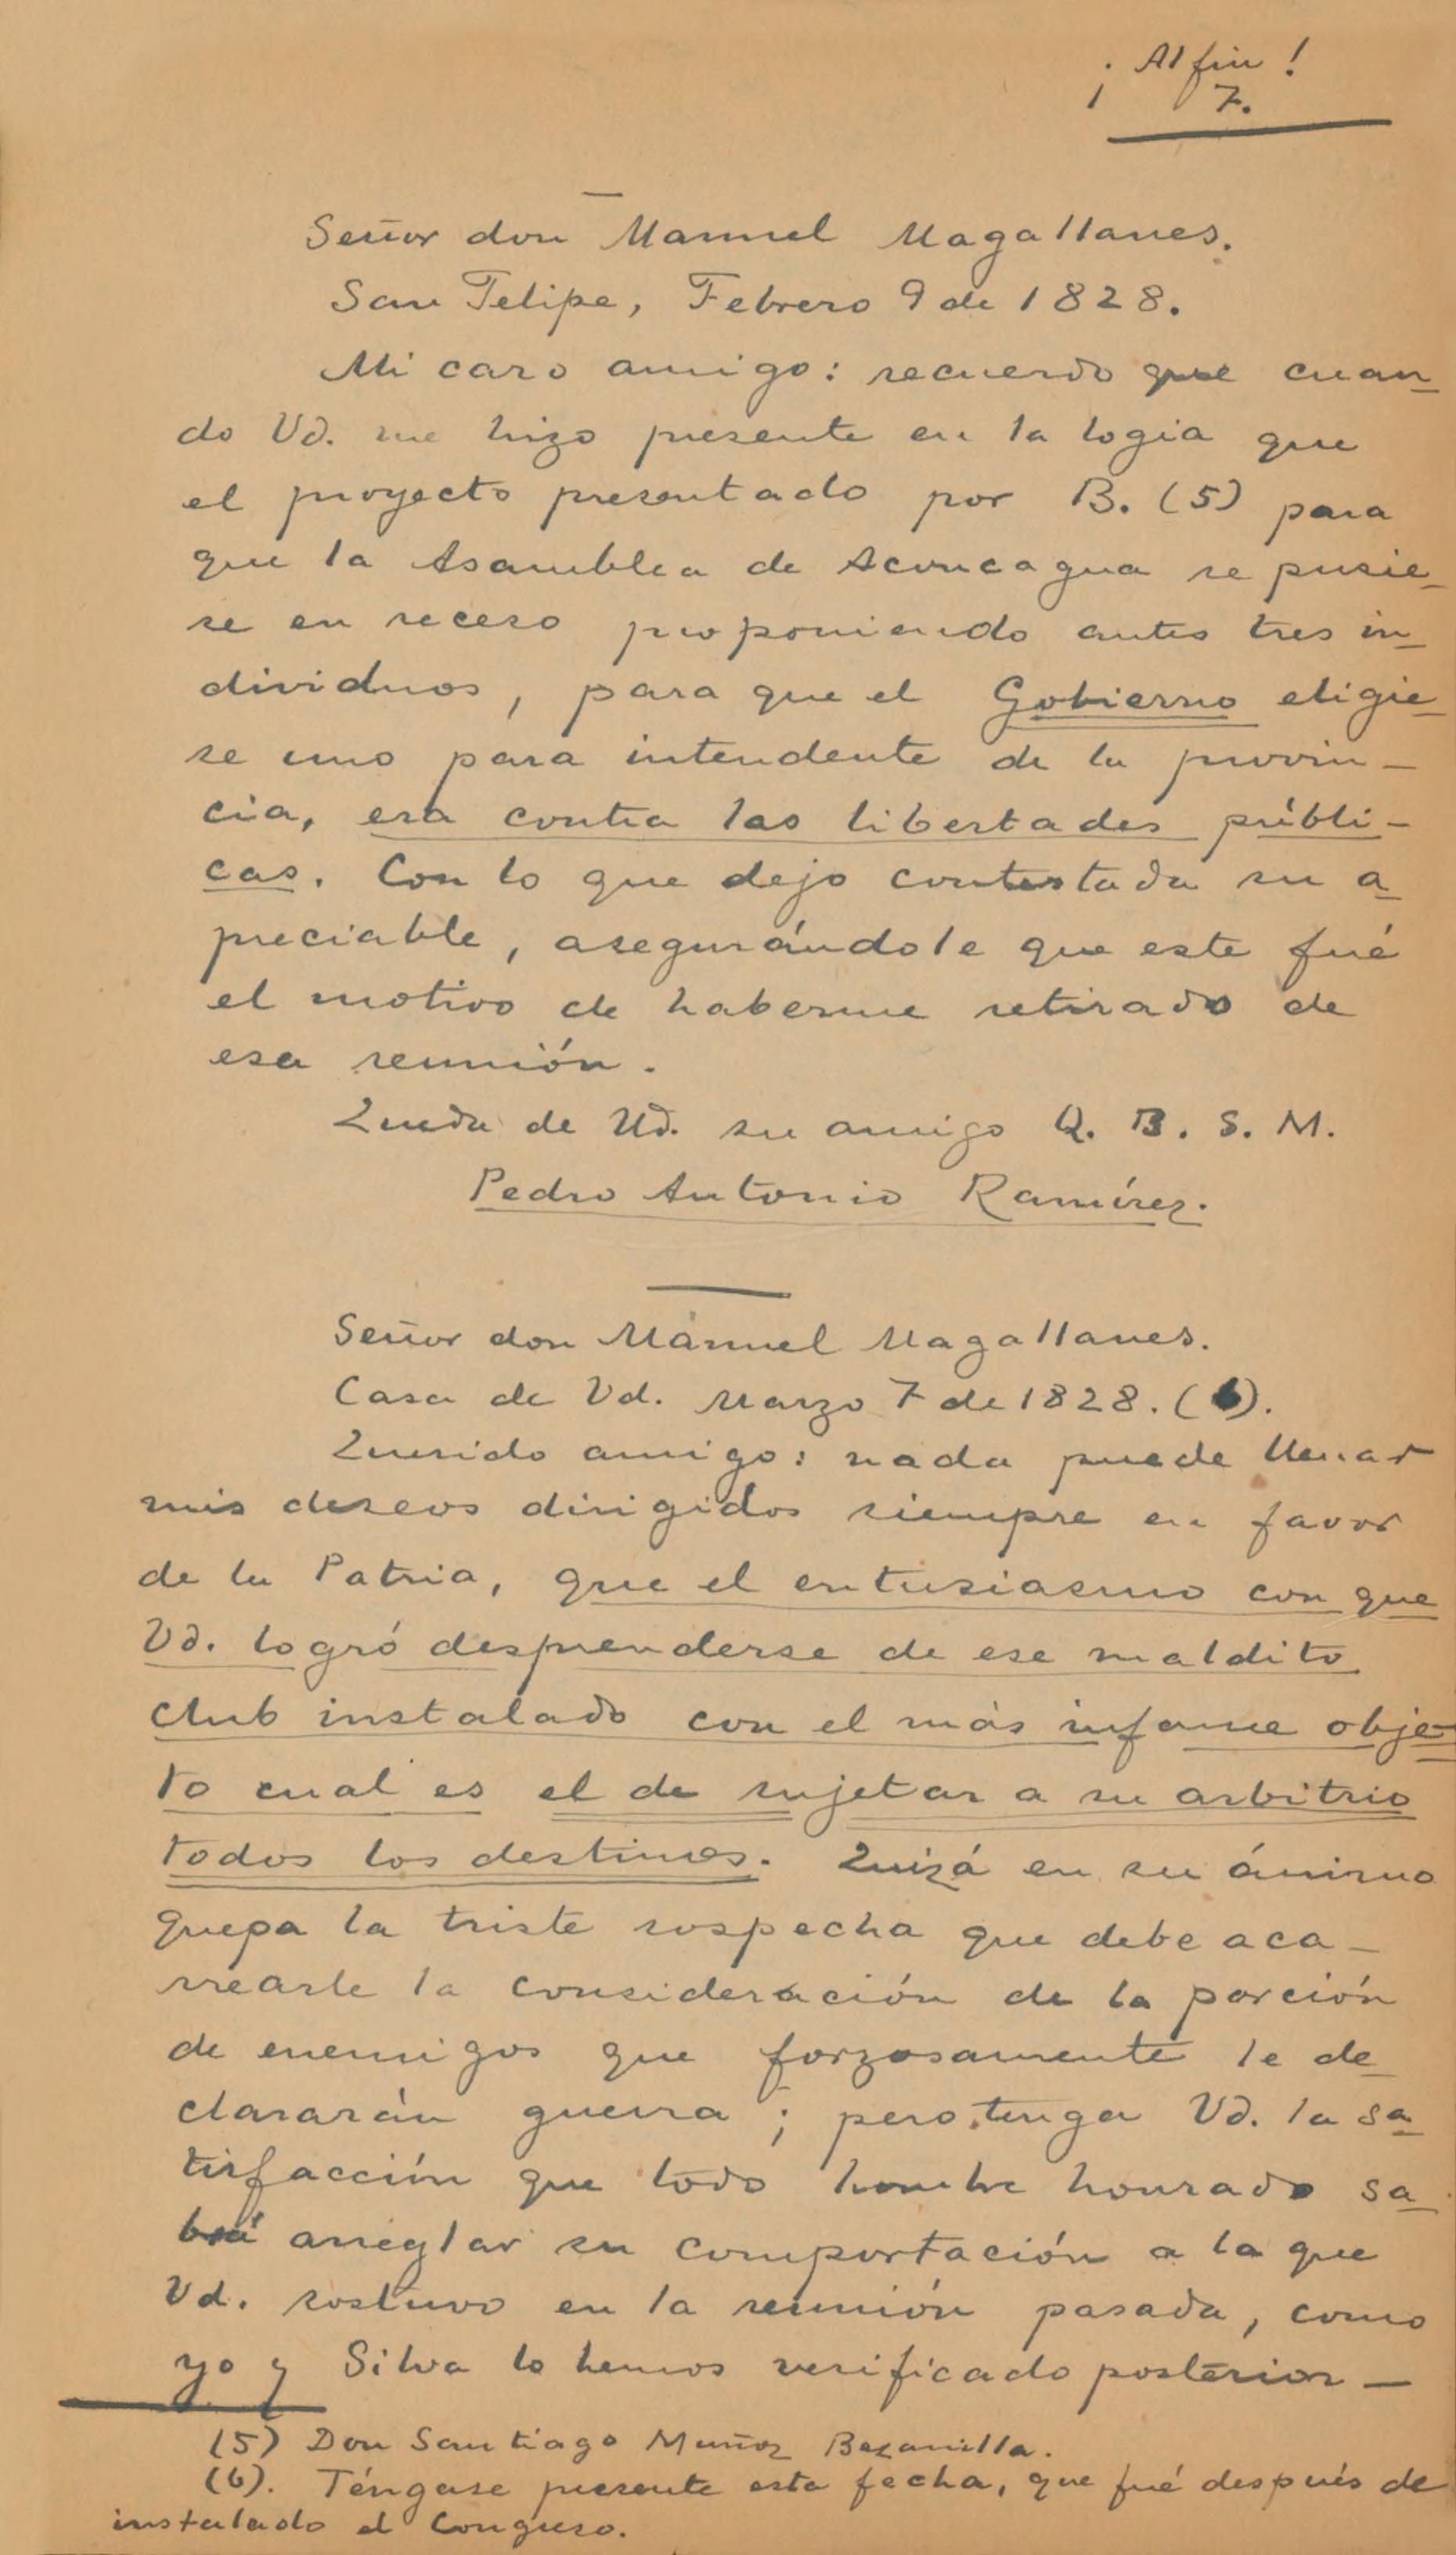 ¡Al fin!
7.
Señor don Manuel Magallanes.
San Felipe, Febrero 9 de 1828.
Mi caro amigo: recuerdo que cuan-
do Vd. me hizo presente en la logia que
el proyecto presentado por B. (5) para
que la Asamblea de Aconcagua se pusie-
se en receso proponiendo antes tres in-
dividuos, para que el Gobierno eligie-
se uno para intendente de la provin-
cia, era contra las libertades públi-
cas. Con lo que dejo contestada su a-
preciable, asegurándole que este fué
el motivo de haberme retirado de
esa reunión.
Queda de Ud. su amigo Q. B. S. M.
Pedro Antonio Ramírez.
Señor don Manuel Magallanes.
Casa de Vd. Marzo 7 de 1828. (6).
Querido amigo: nada puede llenar
mis deseos dirigidos siempre en favor
de la Patria, que el entusiasmo con que
Vd. logró desprenderse de ese maldito
club instalado con el más infame obje-
to cual es el de sujetar a su arbitrio
todos los destinos. Quizá en su ánimo
quepa la triste sospecha que debe aca-
rrearle la consideración de la porción
de enemigos que forzosamente le de-
clararán guerra; pero tenga Vd. la sa-
tisfacción que todo hombre honrado sa-
brá arreglar su comportación a la que
Vd. sostuvo en la reunión pasada, como
yo y Silva lo hemos verificado posterior-
(5) Don Santiago Muñoz Bezanilla.
(6). Téngase presente esta fecha, que fué después de
instalado el Congreso.